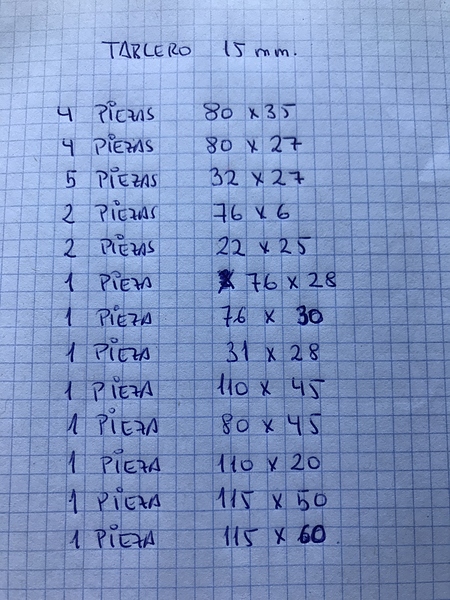 TABLERO 15 mm.
4 PIEZAS 80 x 35
4 PIEZAS 80 x 27
5 PIEZAS 32 x 27
2 PIEZAS 76 x 6
2 PIEZAS 22 x 25
1 PIEZA 76 x 28
1 PIEZA 76 x 30
1 PIEZA 31 x 28
1 PIEZA 110 x 45
1 PIEZA 80 x 45
1 PIEZA 110 x 20
1 PIEZA 115 x 50
1 PIEZA 115 x 60.